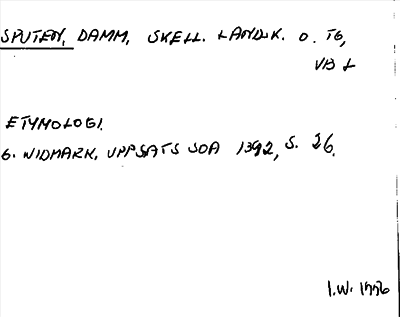 SPUTEN, DAMM, SKELL. LANDSK. O. TG,
VB L
ETYMOLOGI.
G. WIDMARK, UPPSATS SOA 1392, S. 26.
I.W. 1996